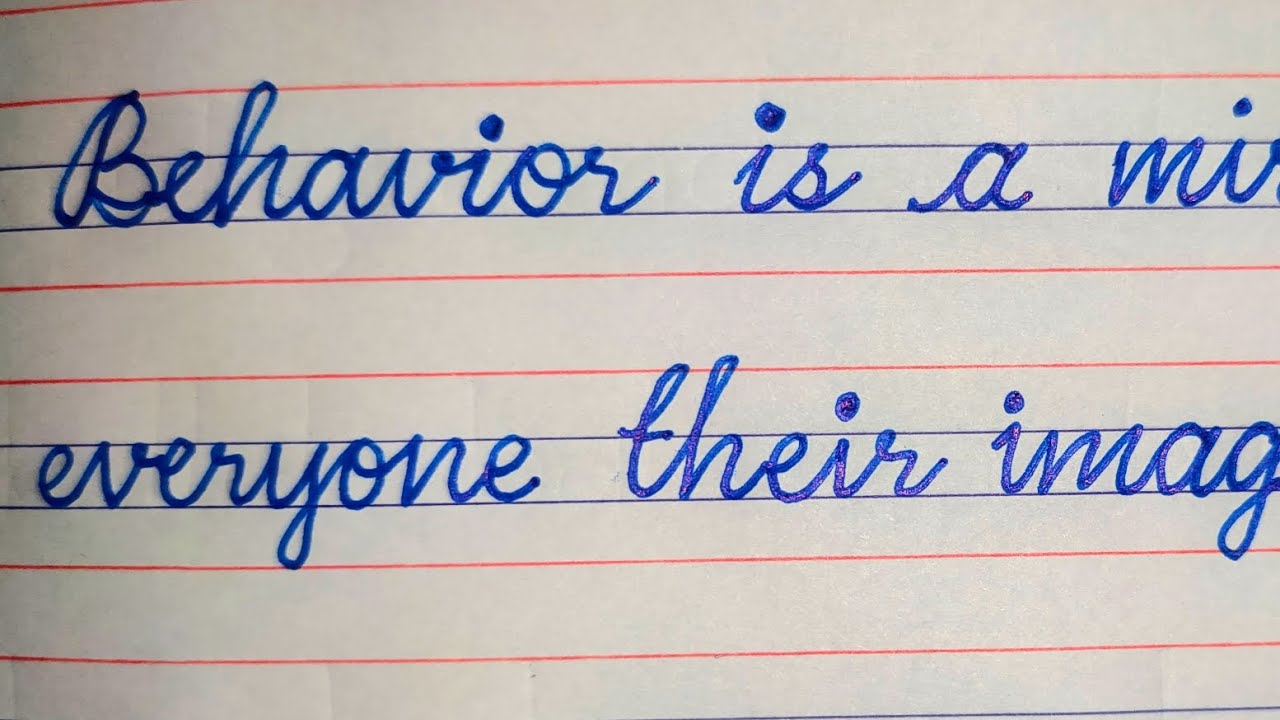 Behavior is a mi
everyone their imag